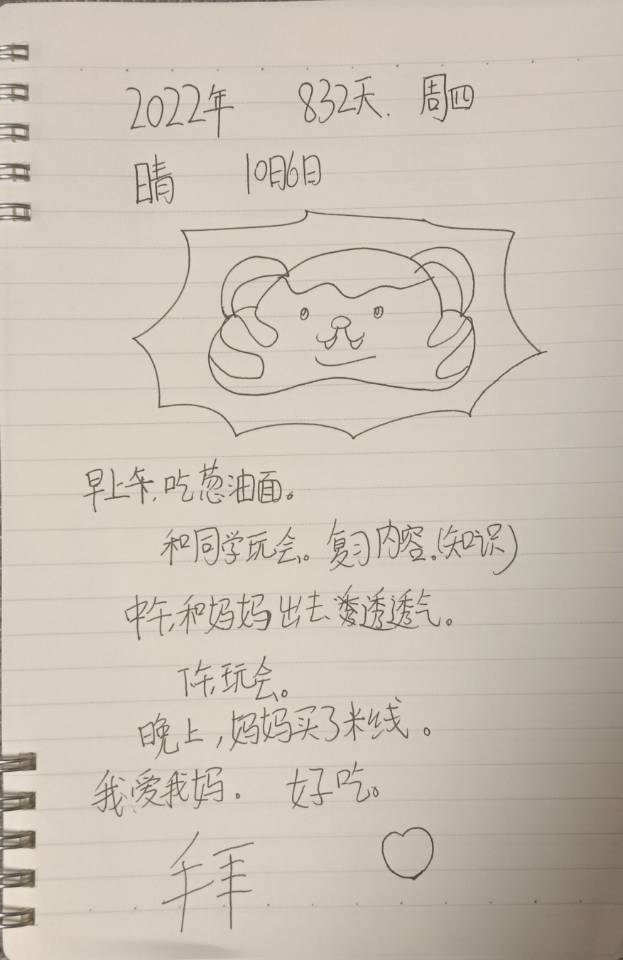 2022年 832天. 周四
晴 10月6日
早上午,吃葱油面。
和同学玩会。复习内容.(知识)
中午,和妈妈出去透透气。
下午,玩会。
晚上,妈妈买了米线。
我爱我妈. 好吃。
拜